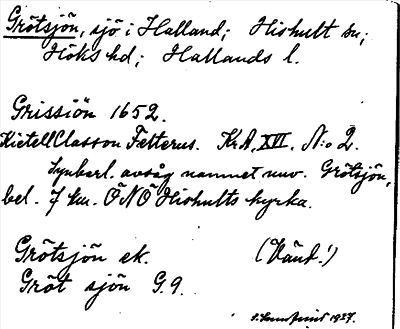 Grötsjön, sjö i Halland; Hishult sn;
Höks hd; Hallands l.
Grissiön 1652.
Kietell Classon Fætterus. KrA, XVII. N:o 2.
Synbarl. avsåg namnet nuv. Grötsjön,
bel. 7 km. ÖNÖ Hishults kyrka.
Grötsjön ek. (Vänd!)
Gröt sjön G.9.
1927.